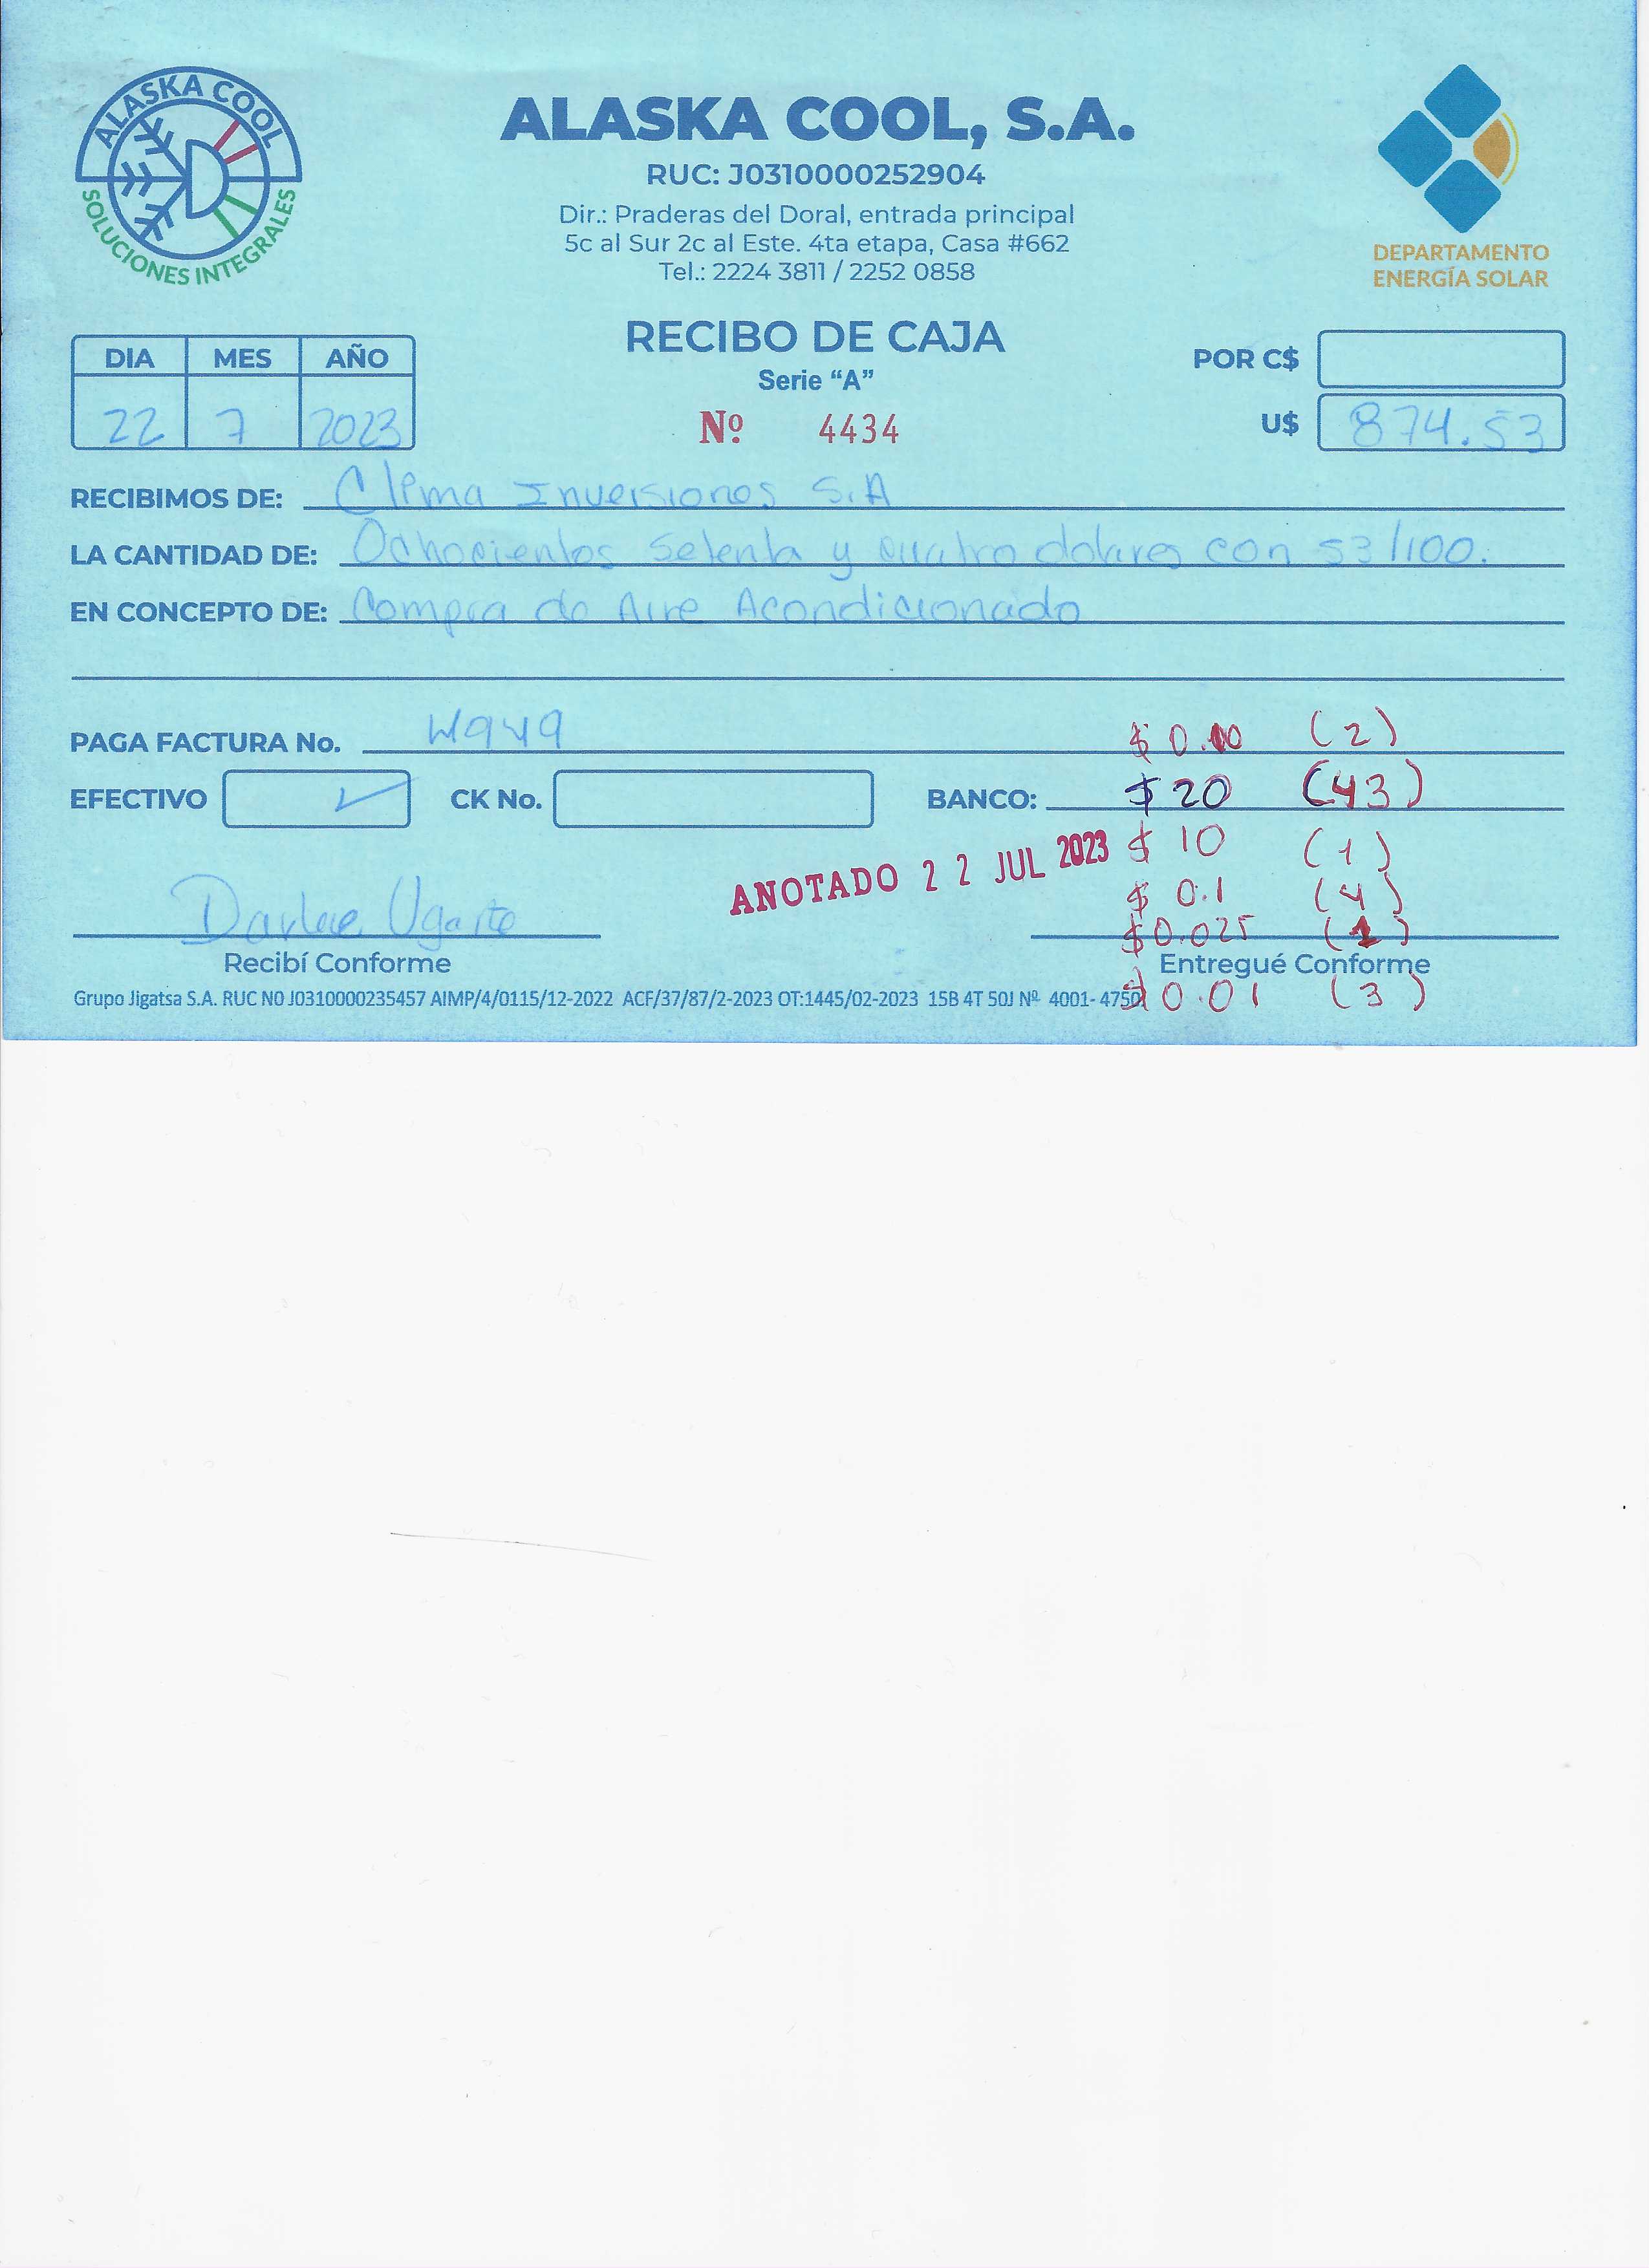 ALASKA COOL
SOLUCIONES INTEGRALES
ALASKA COOL, S.A.
RUC: J0310000252904
Dir.: Praderas del Doral, entrada principal
5c al Sur 2c al Este. 4ta etapa, Casa #662
Tel.: 2224 3811 / 2252 0858
DEPARTAMENTO
ENERGÍA SOLAR
RECIBO DE CAJA
Serie “A”
Nº 4434
DIA MES AÑO
22 7 2023
POR C$
U$ 874.53
RECIBIMOS DE: Clima Inversiones S.A
LA CANTIDAD DE: Ochocientos Setenta y cuatro dolares con 53/100.
EN CONCEPTO DE: Compra de Aire Acondicionado
PAGA FACTURA No.
$ (2)
EFECTIVO ✓ CK No. BANCO: $ 20 (43)
ANOTADO 22 JUL 2023 $ 10 (1)
$ 0.1 (4)
$0.025 (1)
Darlee Ugarte
Recibí Conforme
Entregué Conforme
Grupo Jigatsa S.A. RUC N0 J0310000235457 AIMP/4/0115/12-2022 ACF/37/87/2-2023 OT:1445/02-2023 15B 4T 50J Nº 4001-4750
$ 0.01 (3)